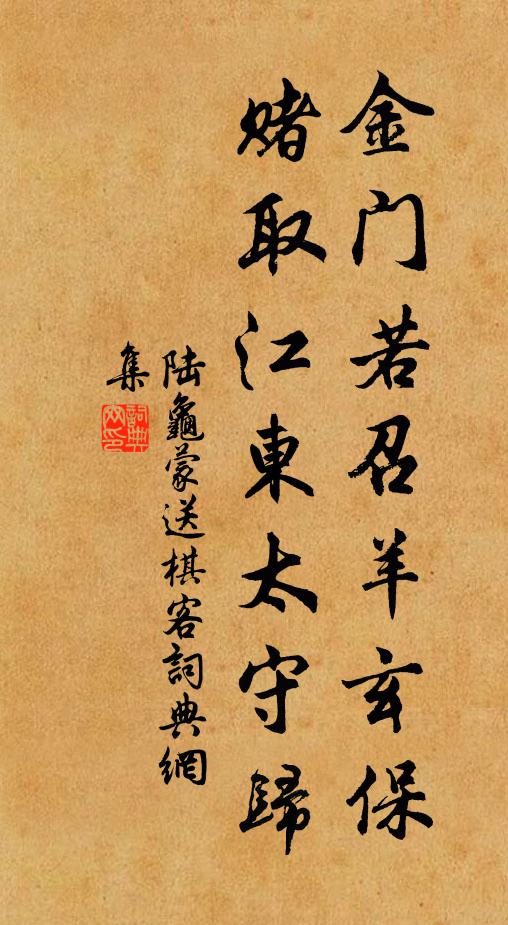 金门若召羊玄保
赌取江東太守歸
陆龜蒙送棋客詞典網
集
詞典
网印